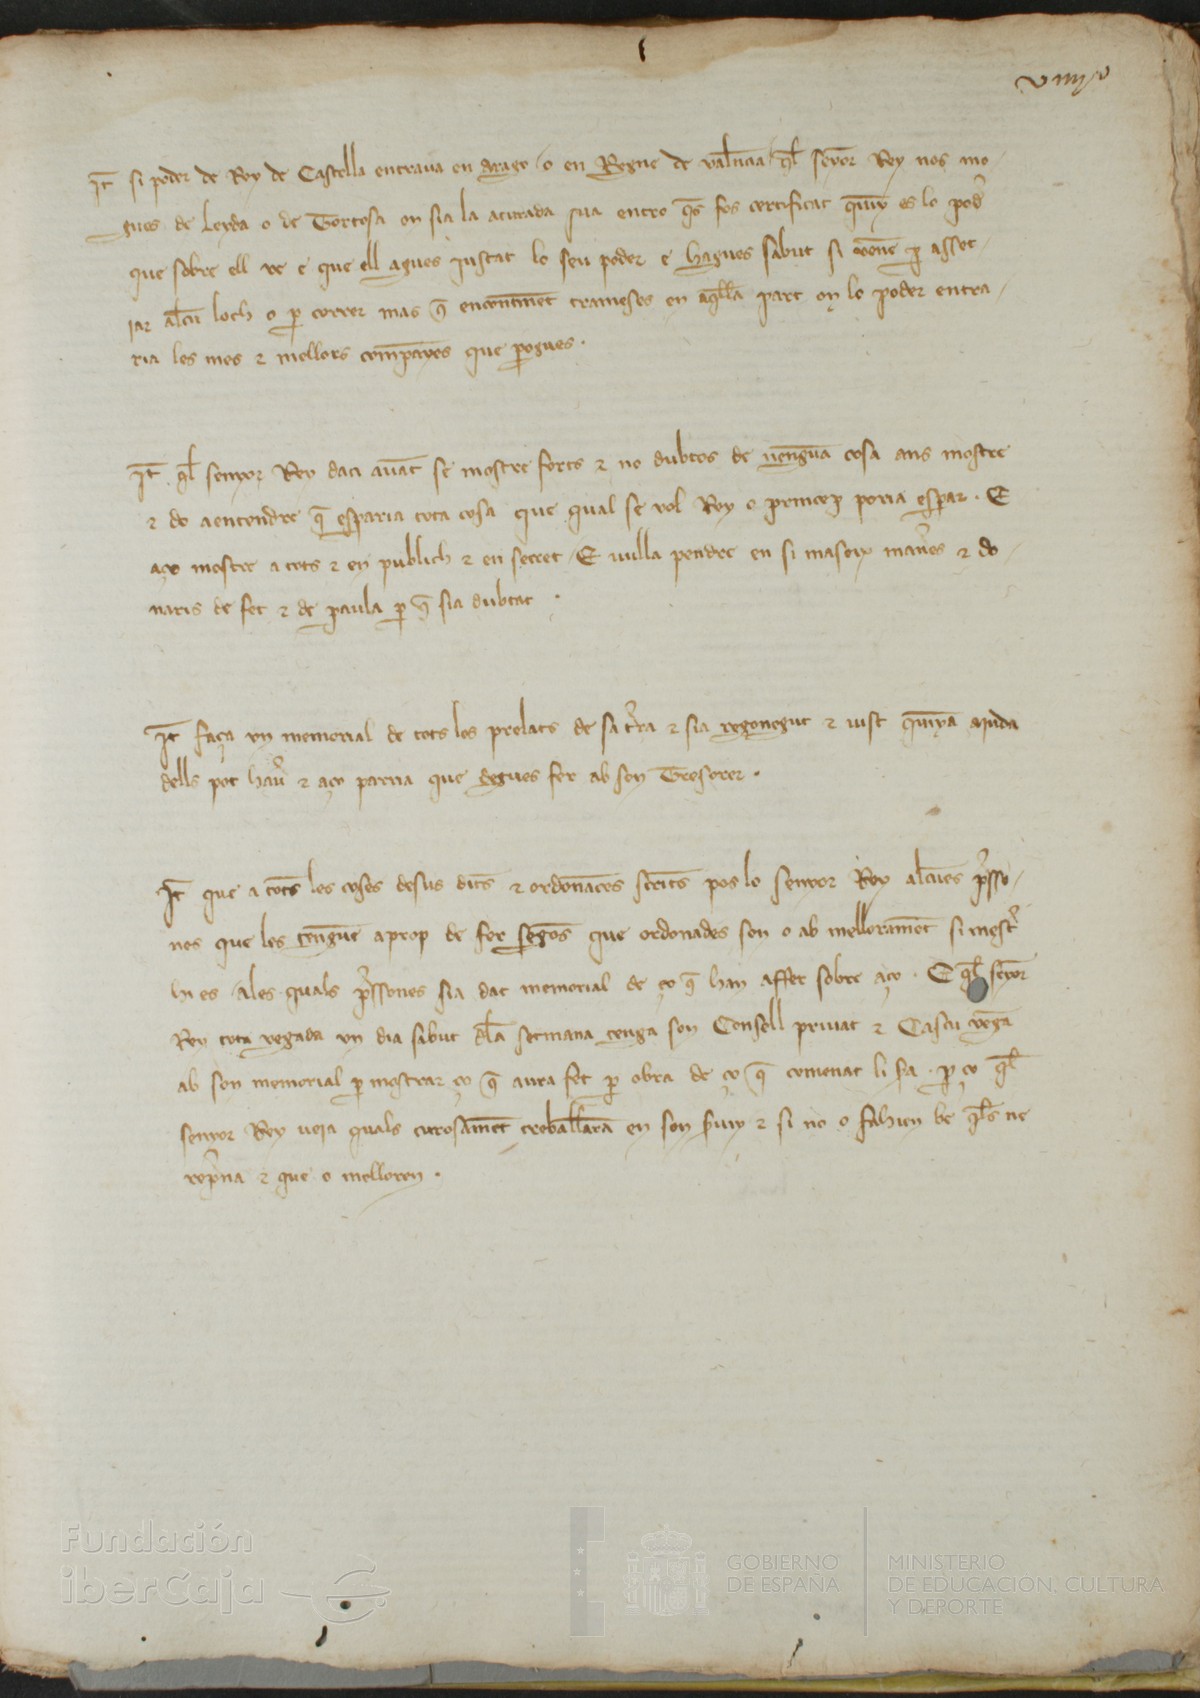 viiijo
It si poder de Rey de Castella entraua en Arago o en Regne de valncia ql senyor Rey nos mo-
gues de Leyda o de Tortosa on sia la aturada sua entro qs fos certificat quiny es lo poder
que sobre ell ve e que ell agues iustat lo seu poder e hagues sabut si vene p asset-
iar alcu loch o p correr mas q encontinent trameses en aqlla part on lo poder entra-
ria les mes & mellors companyes que pogues.
It ql senyor Rey daci auant se mostre forts & no dubtos de nenguna cosa ans mostre
& do aentendre q esparia tota cosa que qual se vol Rey o princep poria esparar. E
aço mostre a tots & en publich & en secret. E vulla pendre en si maseix maneres & do-
naris de fet & de paraula p q sia dubtat.
It faça un memorial de tots los prelats de sa terra & sia regonegut & uist quinya aiuda
dells pot hauer & aço parria que degues fer ab son Tresorer.
It que a totes les coses desus dites & ordonances scrites pos lo senyor Rey alcunes perso-
nes que les tenguen aprop de fer segons que ordonades son o ab mellorament si mester
hi es Ales quals persones sia dat memorial de ço q han affer sobre aço. E ql senyor
Rey tota vegada un dia sabut dla setmana tenga son Consell priuat & Cascu venga
ab son memorial p mostrar ço q aura fet p obra de ço q comenat li sia. p ço ql
senyor Rey veia quals curosament treballaran en son seruiy & si no o fahien be qls ne
reprena & que o melloren.
Fundación
iberCaja
GOBIERNO
DE ESPAÑA
MINISTERIO
DE EDUCACIÓN, CULTURA
Y DEPORTE